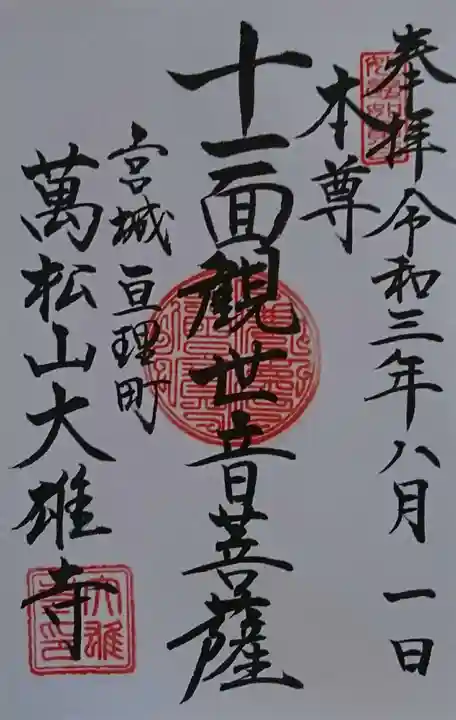 奉拝 令和三年八月 一日
本尊
十一面観世音菩薩
宮城 亘理町
萬松山大雄寺